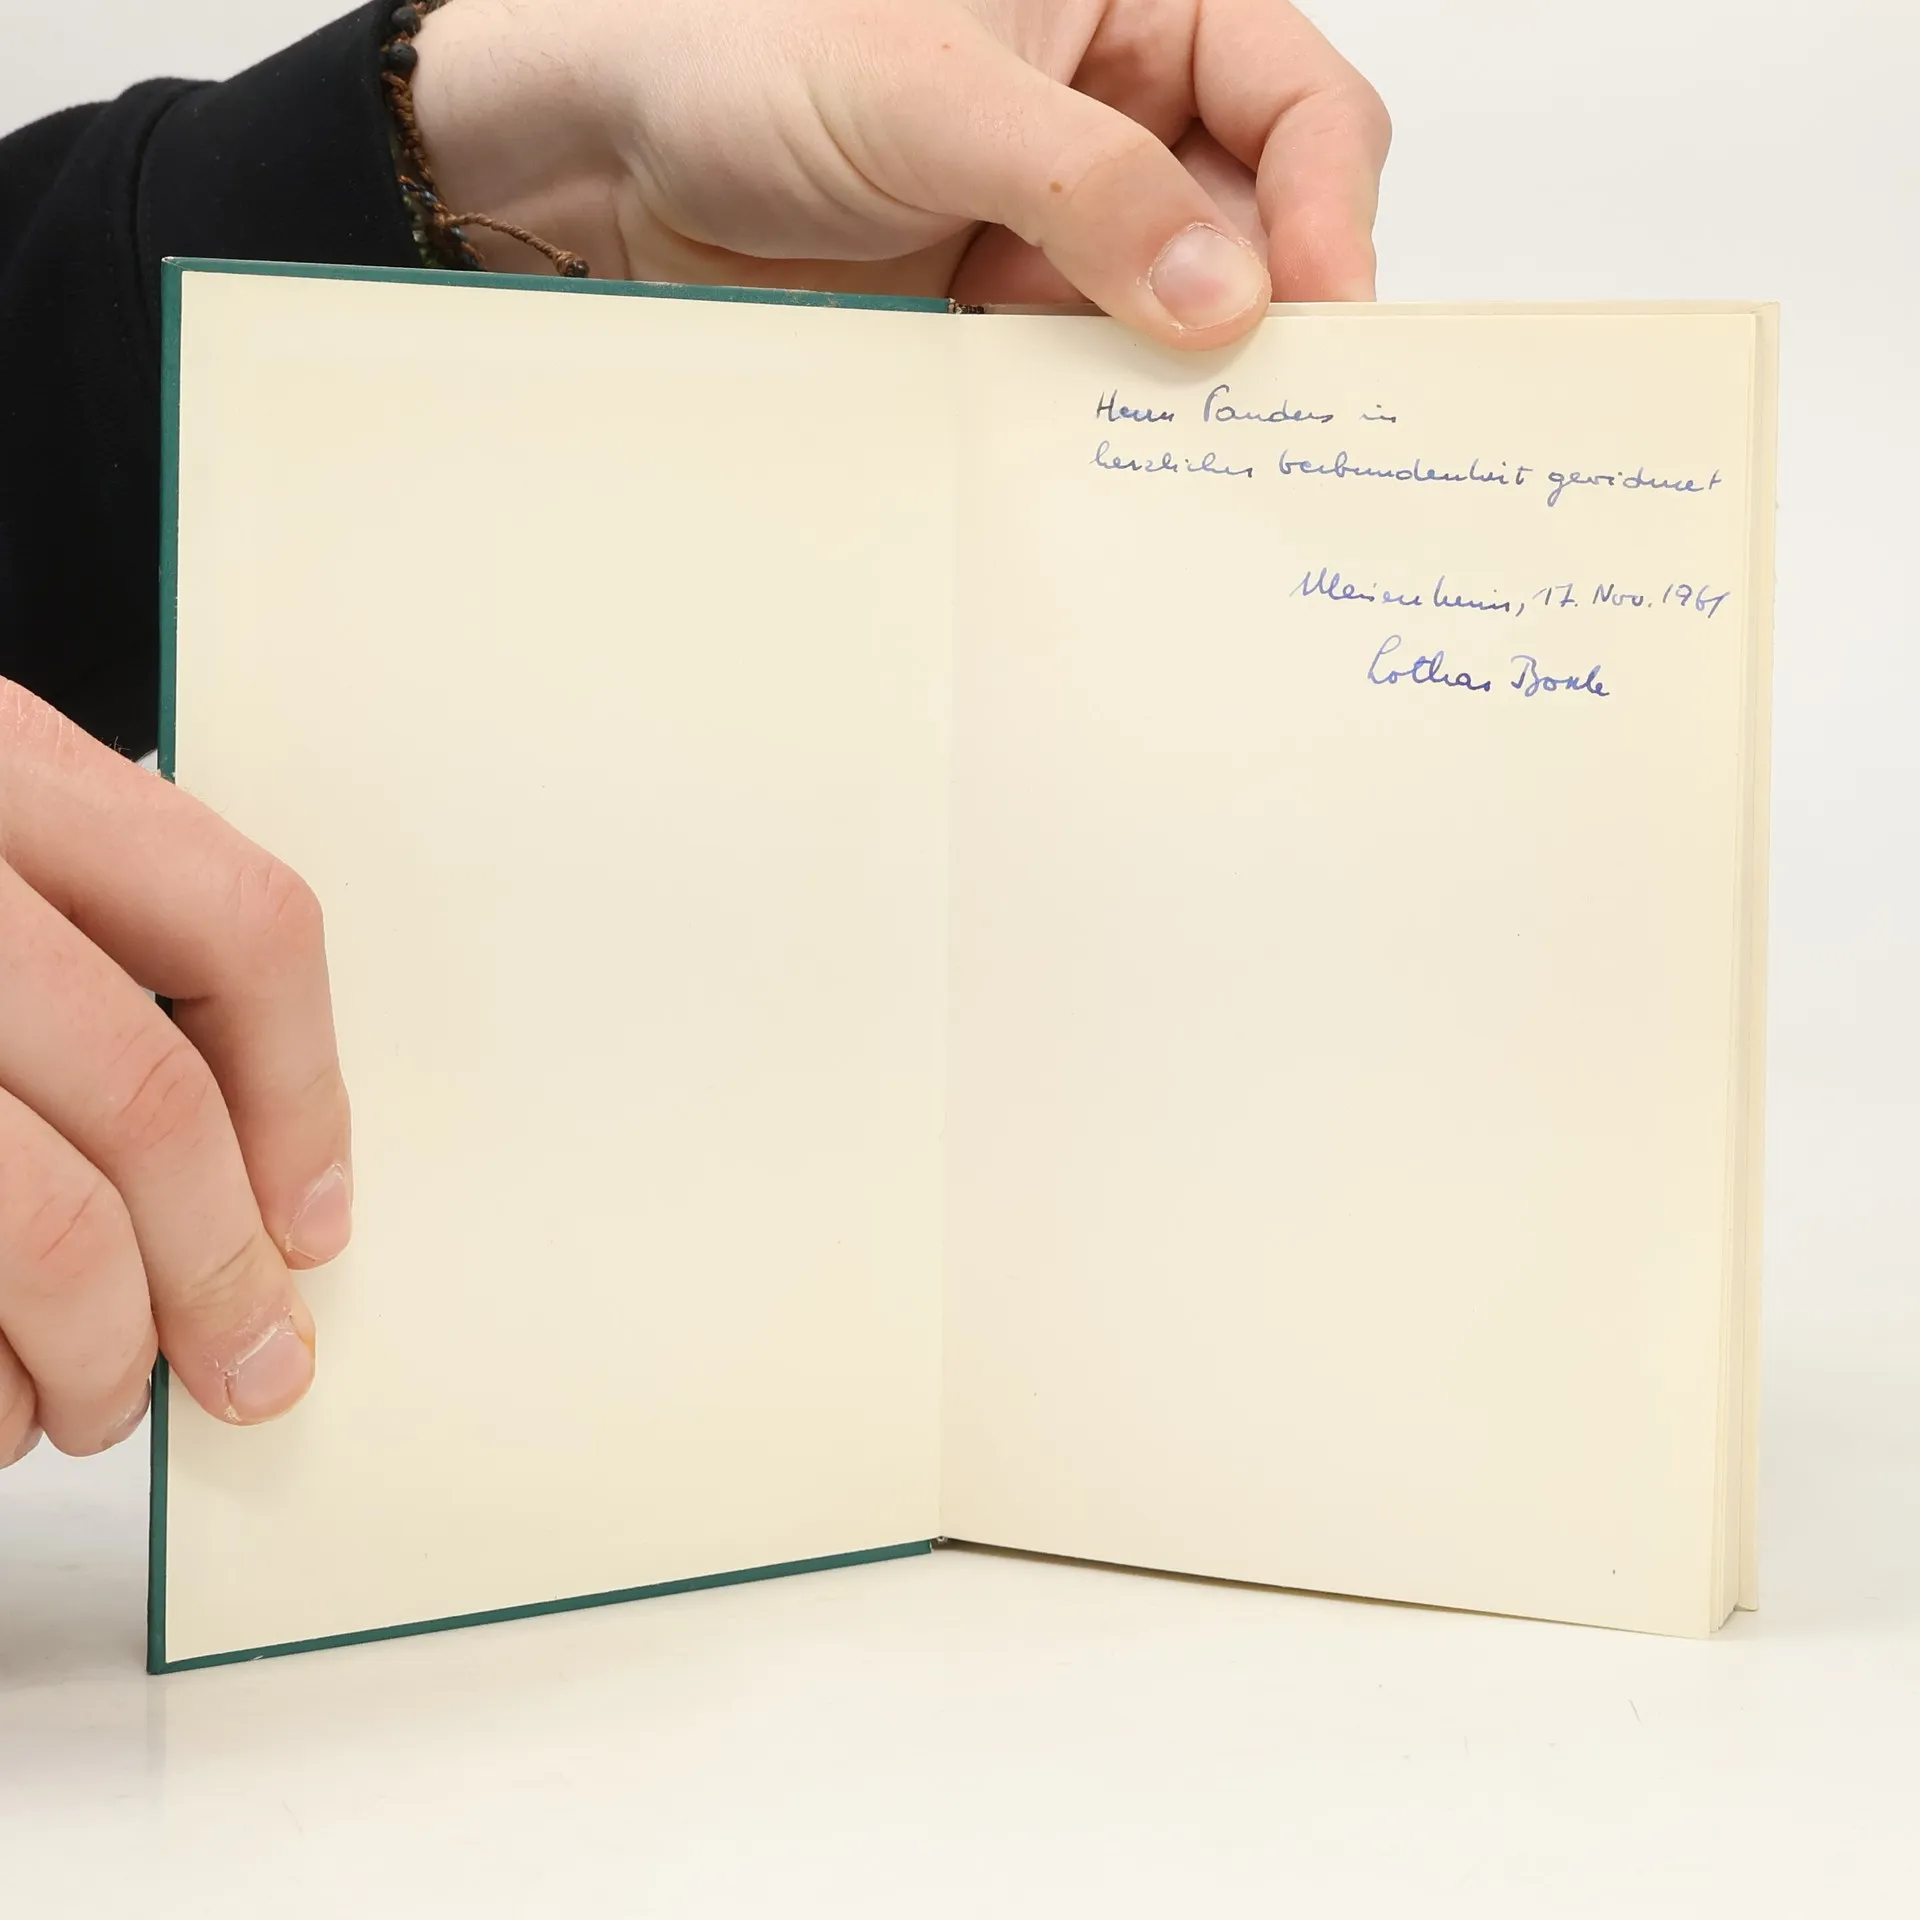 Herrn Sanders in
herzlicher Verbundenheit gewidmet
Meisenheim, 17. Nov. 1961
Lothar